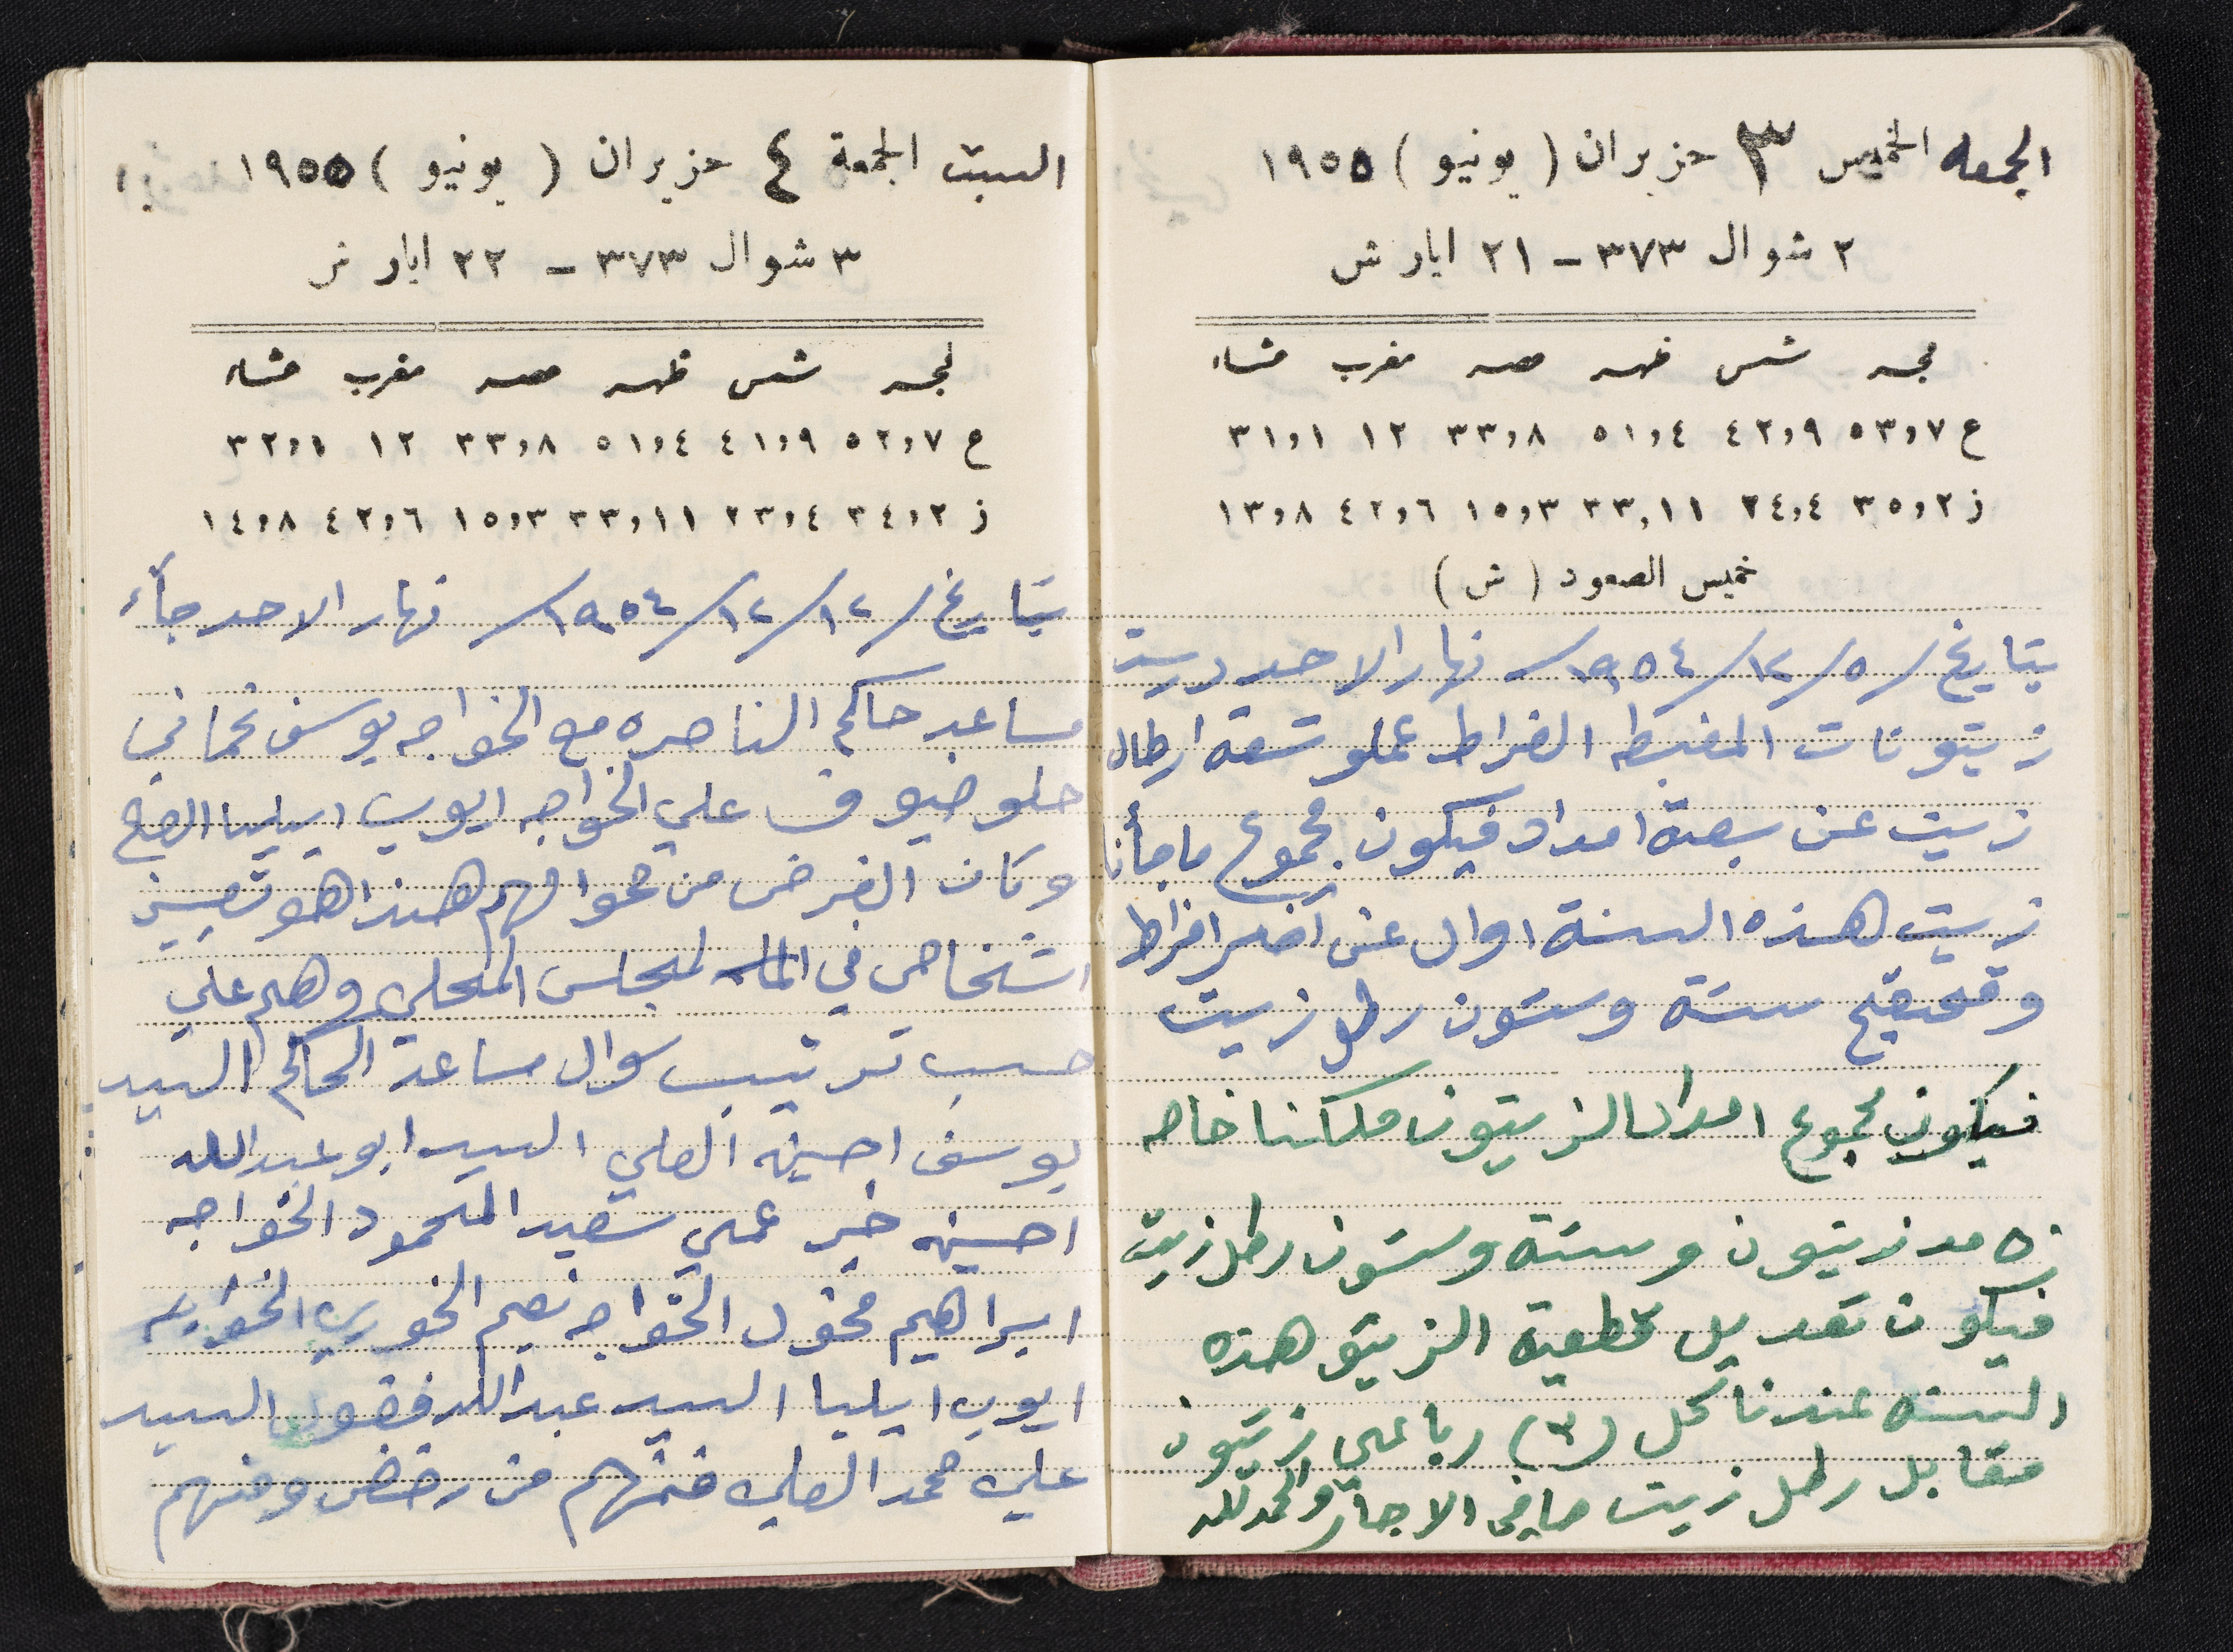 الجمعه الخميس ٣ حزيران ( يونيو ) ١٩٥٥
٢ شوال ٣٧٣ – ٢١ ايار ش
فجر شمس ظهر عصر مغرب عشاء
ع ٥٣،٧ ٤٢،٩ ٥١،٤ ٣٣،٨ ١٢ ٣١،١
ز ٣٥،٢ ٢٤،٤ ٣٣،١١ ١٥،٣ ٤٢،٦ ١٣،٨
خميس الصعود ( ش )
بتاريخ / ٥ / ١٢ / ١٩٥٤ / نهار الاحد درست
زيتونات المغبطه الفراط عملو تسعة ارطال
زيت عن سبعة امداد فيكون مجموع ما جأنا
زيت هذه السنة اوال عن آخر افراط
وقحقيح ستة وستون رطل زيت
فيكون مجموع امداد الزيتون ملكنا خاصه
مد زيتون وستة وستون رطل زيت
فيكون تعديل عطية الزيتو هذه
السنه عندنا كل (٣) رباعي زيتون
مقابل رطل زيت صافي الاجار والحمد لله
السبت الجمعة ٤ حزيران ( يونيو ) ١٩٥٥
٣ شوال ٣٧٣ – ٢٢ ايار ش
فجر شمس ظهر عصر مغرب عشاء
ع ٥٢،٧ ٤١،٩ ٥١،٤ ٣٣،٨ ١٢ ٣٢،١
ز ٣٤،٢ ٢٣،٤ ٣٣،١١ ١٥،٣ ٤٢،٦ ١٤،٨
بتاريخ / ١٢ / ١٢ / ١٩٥٤ / نهار الاحد جأء
مساعد حاكم الناصره مع الخواجه يوسف نحماني
حلو ضيوف على الخواجه ايوب ايليا
وكان الغرض من هذا هو تعيين
اشخاص في المجلس المحلي وهم على
حسب ترتيب سوال مساعد الحاكم السيد
يوسف احسين العلي السيد ابو عبدالله
احسين خير عملي سعيد المحمود الخواجه
ابراهيم مخول الخواجه نعيم الخوري الخواجه
ايوب ايليا السيد عبدالله السيد
علي محمد العلي فمنهم من رفض ومنهم